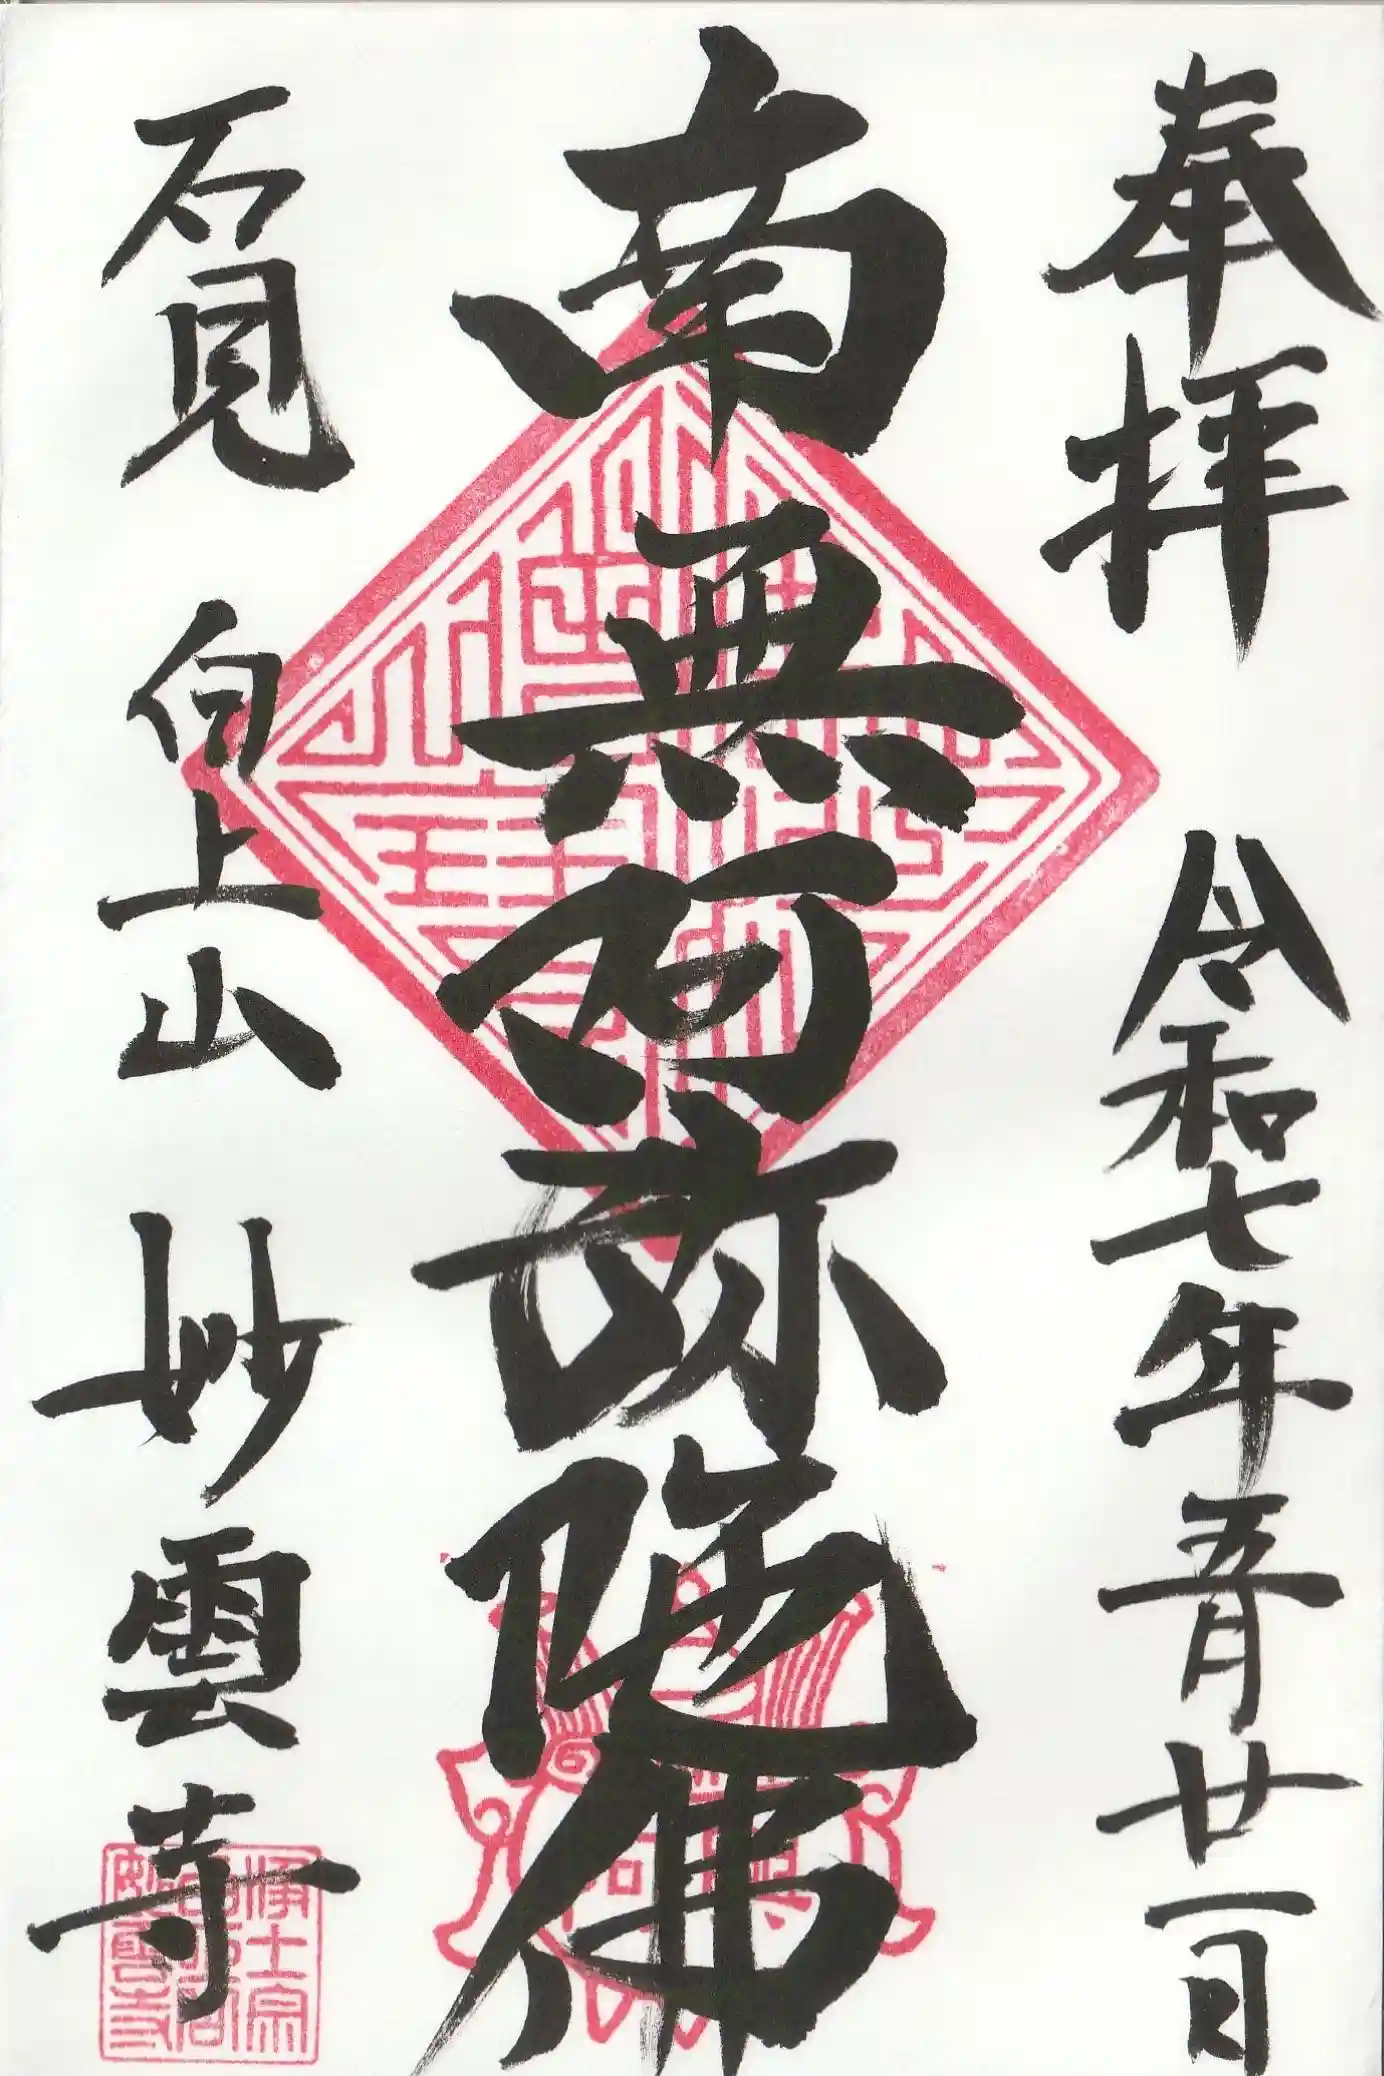 奉拝 令和七年五月廿一日
南無阿弥陀佛
石見 向上山 妙雲寺
浄土宗
妙雲寺